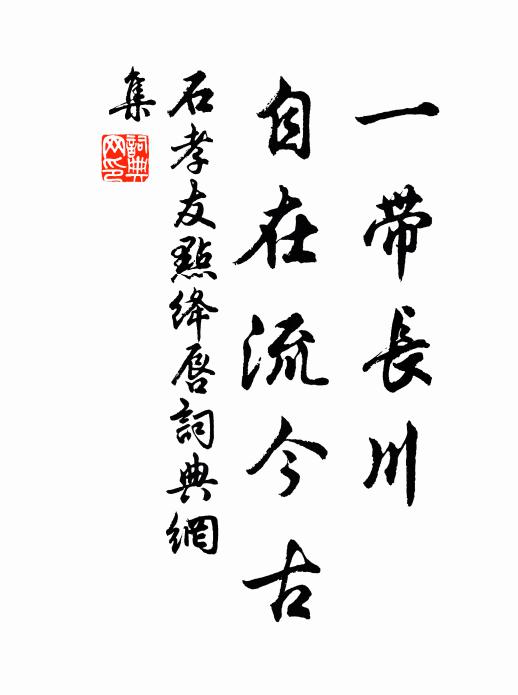 一帶長川
自在流今古
石孝友點絳唇詞典網
集
詞典網印